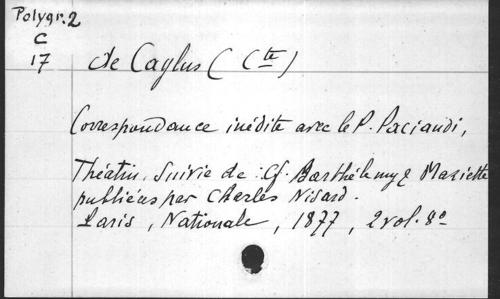 Polygr. 2
C
17
de Caylus (Cte)
Correspondance inédite avec le P. Paciaudi,
Théatin, suivie de : Cf. Barthélemy & Mariette
publiées par Charles Nisard.
Paris, Nationale, 1877, 2 vol. 8º